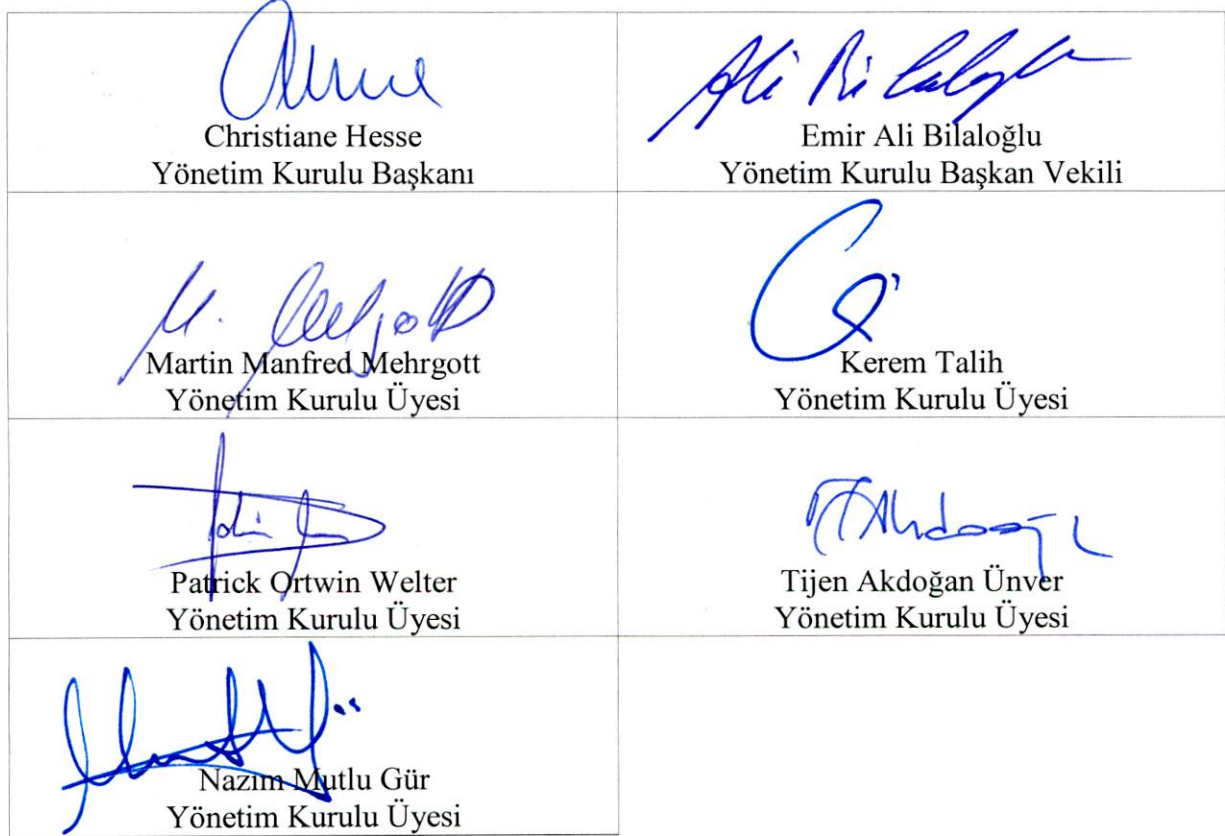 Christiane Hesse
Yönetim Kurulu Başkanı
Ali Bilaloğlu
Emir Ali Bilaloğlu
Yönetim Kurulu Başkan Vekili
M. Mehrgott
Martin Manfred Mehrgott
Yönetim Kurulu Üyesi
Kerem Talih
Yönetim Kurulu Üyesi
Patrick Ortwin Welter
Yönetim Kurulu Üyesi
Tijen Akdoğan Ünver
Yönetim Kurulu Üyesi
Nazım Mutlu Gür
Yönetim Kurulu Üyesi